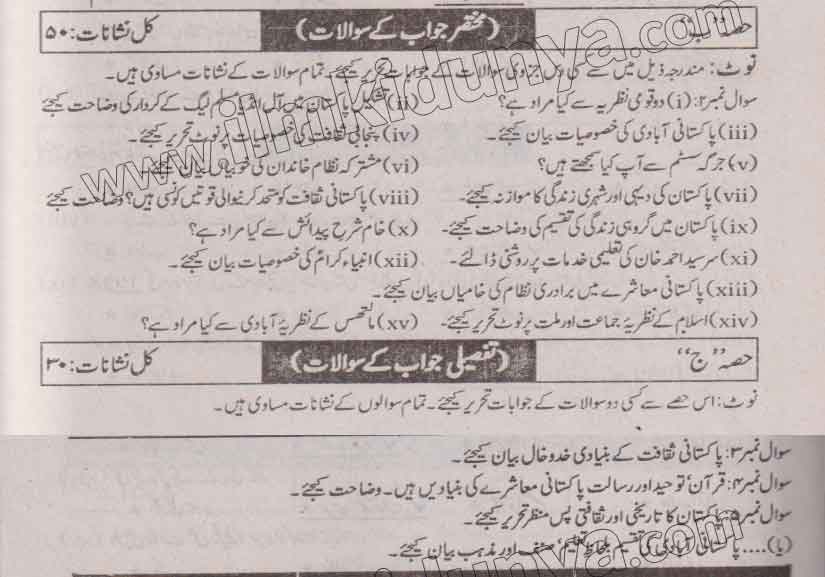 حصہ "ب" (مختصر جواب کے سوالات) کل نشانات: ۵۰
نوٹ: مندرجہ ذیل میں سے کسی دس جزوی سوالات کے جوابات تحریر کیجئے۔ تمام سوالات کے نشانات مساوی ہیں۔
سوال نمبر ۲: (i) دو قومی نظریہ سے کیا مراد ہے؟ (ii) تشکیل پاکستان میں آل انڈیا مسلم لیگ کے کردار کی وضاحت کیجئے
(iii) پاکستانی آبادی کی خصوصیات بیان کیجئے۔ (iv) پنجابی ثقافت کی خصوصیات پر نوٹ تحریر کیجئے۔
(v) جرگہ سسٹم سے آپ کیا سمجھتے ہیں؟ (vi) مشترکہ نظام خاندان کی خوبیاں بیان کیجئے۔
(vii) پاکستان کی دیہی اور شہری زندگی کا موازنہ کیجئے۔ (viii) پاکستانی ثقافت کو متحد کرنیوالی قوتیں کونسی ہیں؟ وضاحت کیجئے
(ix) پاکستان میں گروہی زندگی کی تقسیم کی وضاحت کیجئے۔ (x) خام شرح پیدائش سے کیا مراد ہے؟
(xi) سرسید احمد خان کی تعلیمی خدمات پر روشنی ڈالئے۔ (xii) انبیاء کرامؑ کی خصوصیات بیان کیجئے۔
(xiii) پاکستانی معاشرے میں برادری نظام کی خامیاں بیان کیجئے۔
(xiv) اسلام کے نظریۂ جماعت اور ملت پر نوٹ تحریر کیجئے۔ (xv) مالتھس کے نظریۂ آبادی سے کیا مراد ہے؟
حصہ "ج" (تفصیلی جواب کے سوالات) کل نشانات: ۳۰
نوٹ: اس حصے سے کسی دو سوالات کے جوابات تحریر کیجئے۔ تمام سوالوں کے نشانات مساوی ہیں۔
سوال نمبر ۳: پاکستانی ثقافت کے بنیادی خدوخال بیان کیجئے۔
سوال نمبر ۴: قرآن، توحید اور رسالت پاکستانی معاشرے کی بنیادیں ہیں۔ وضاحت کیجئے۔
سوال نمبر ۵: پاکستان کا تاریخی اور ثقافتی پس منظر تحریر کیجئے۔
(یا).... پاکستانی آبادی کی تقسیم بلحاظ تعلیم، صنف اور مذہب بیان کیجئے۔
www.ilmkidunya.com